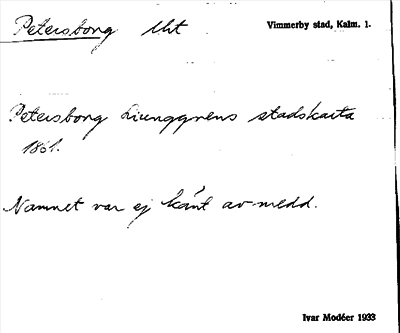 Petersborg lht
Vimmerby stad, Kalm. l.
Petersborg Liunggrens stadskarta
1861.
Namnet var ej känt av medd.
Ivar Modéer 1933